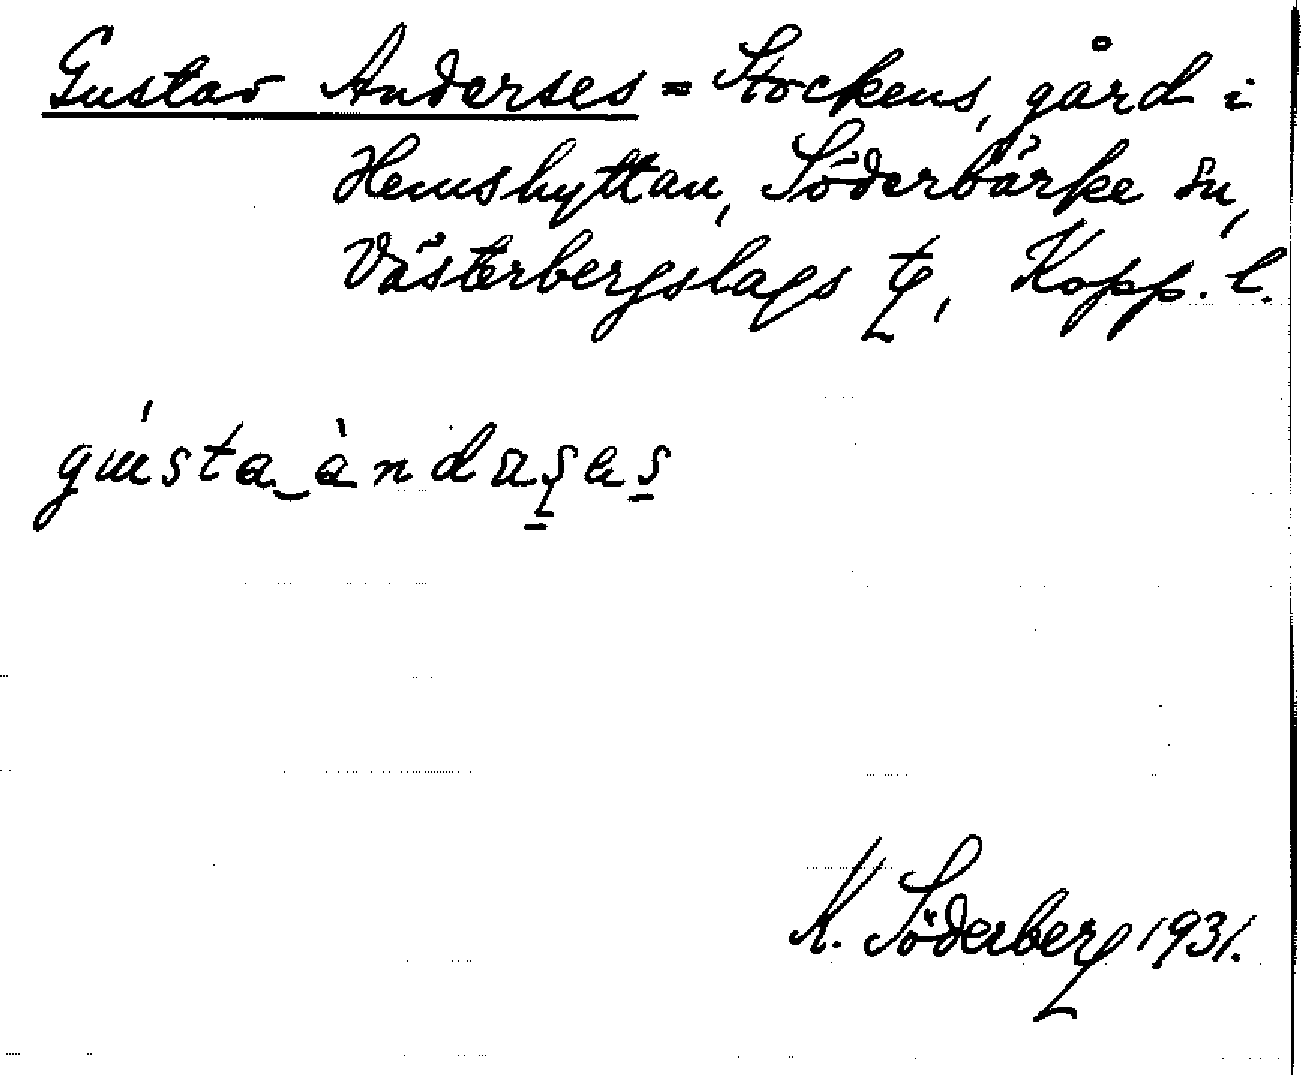 Gustav Anderses = Stockens, gård i
Hemshyttan, Söderbärke sn,
Västerbergslags tg, Kopp. l.
K. Söderberg 1931.